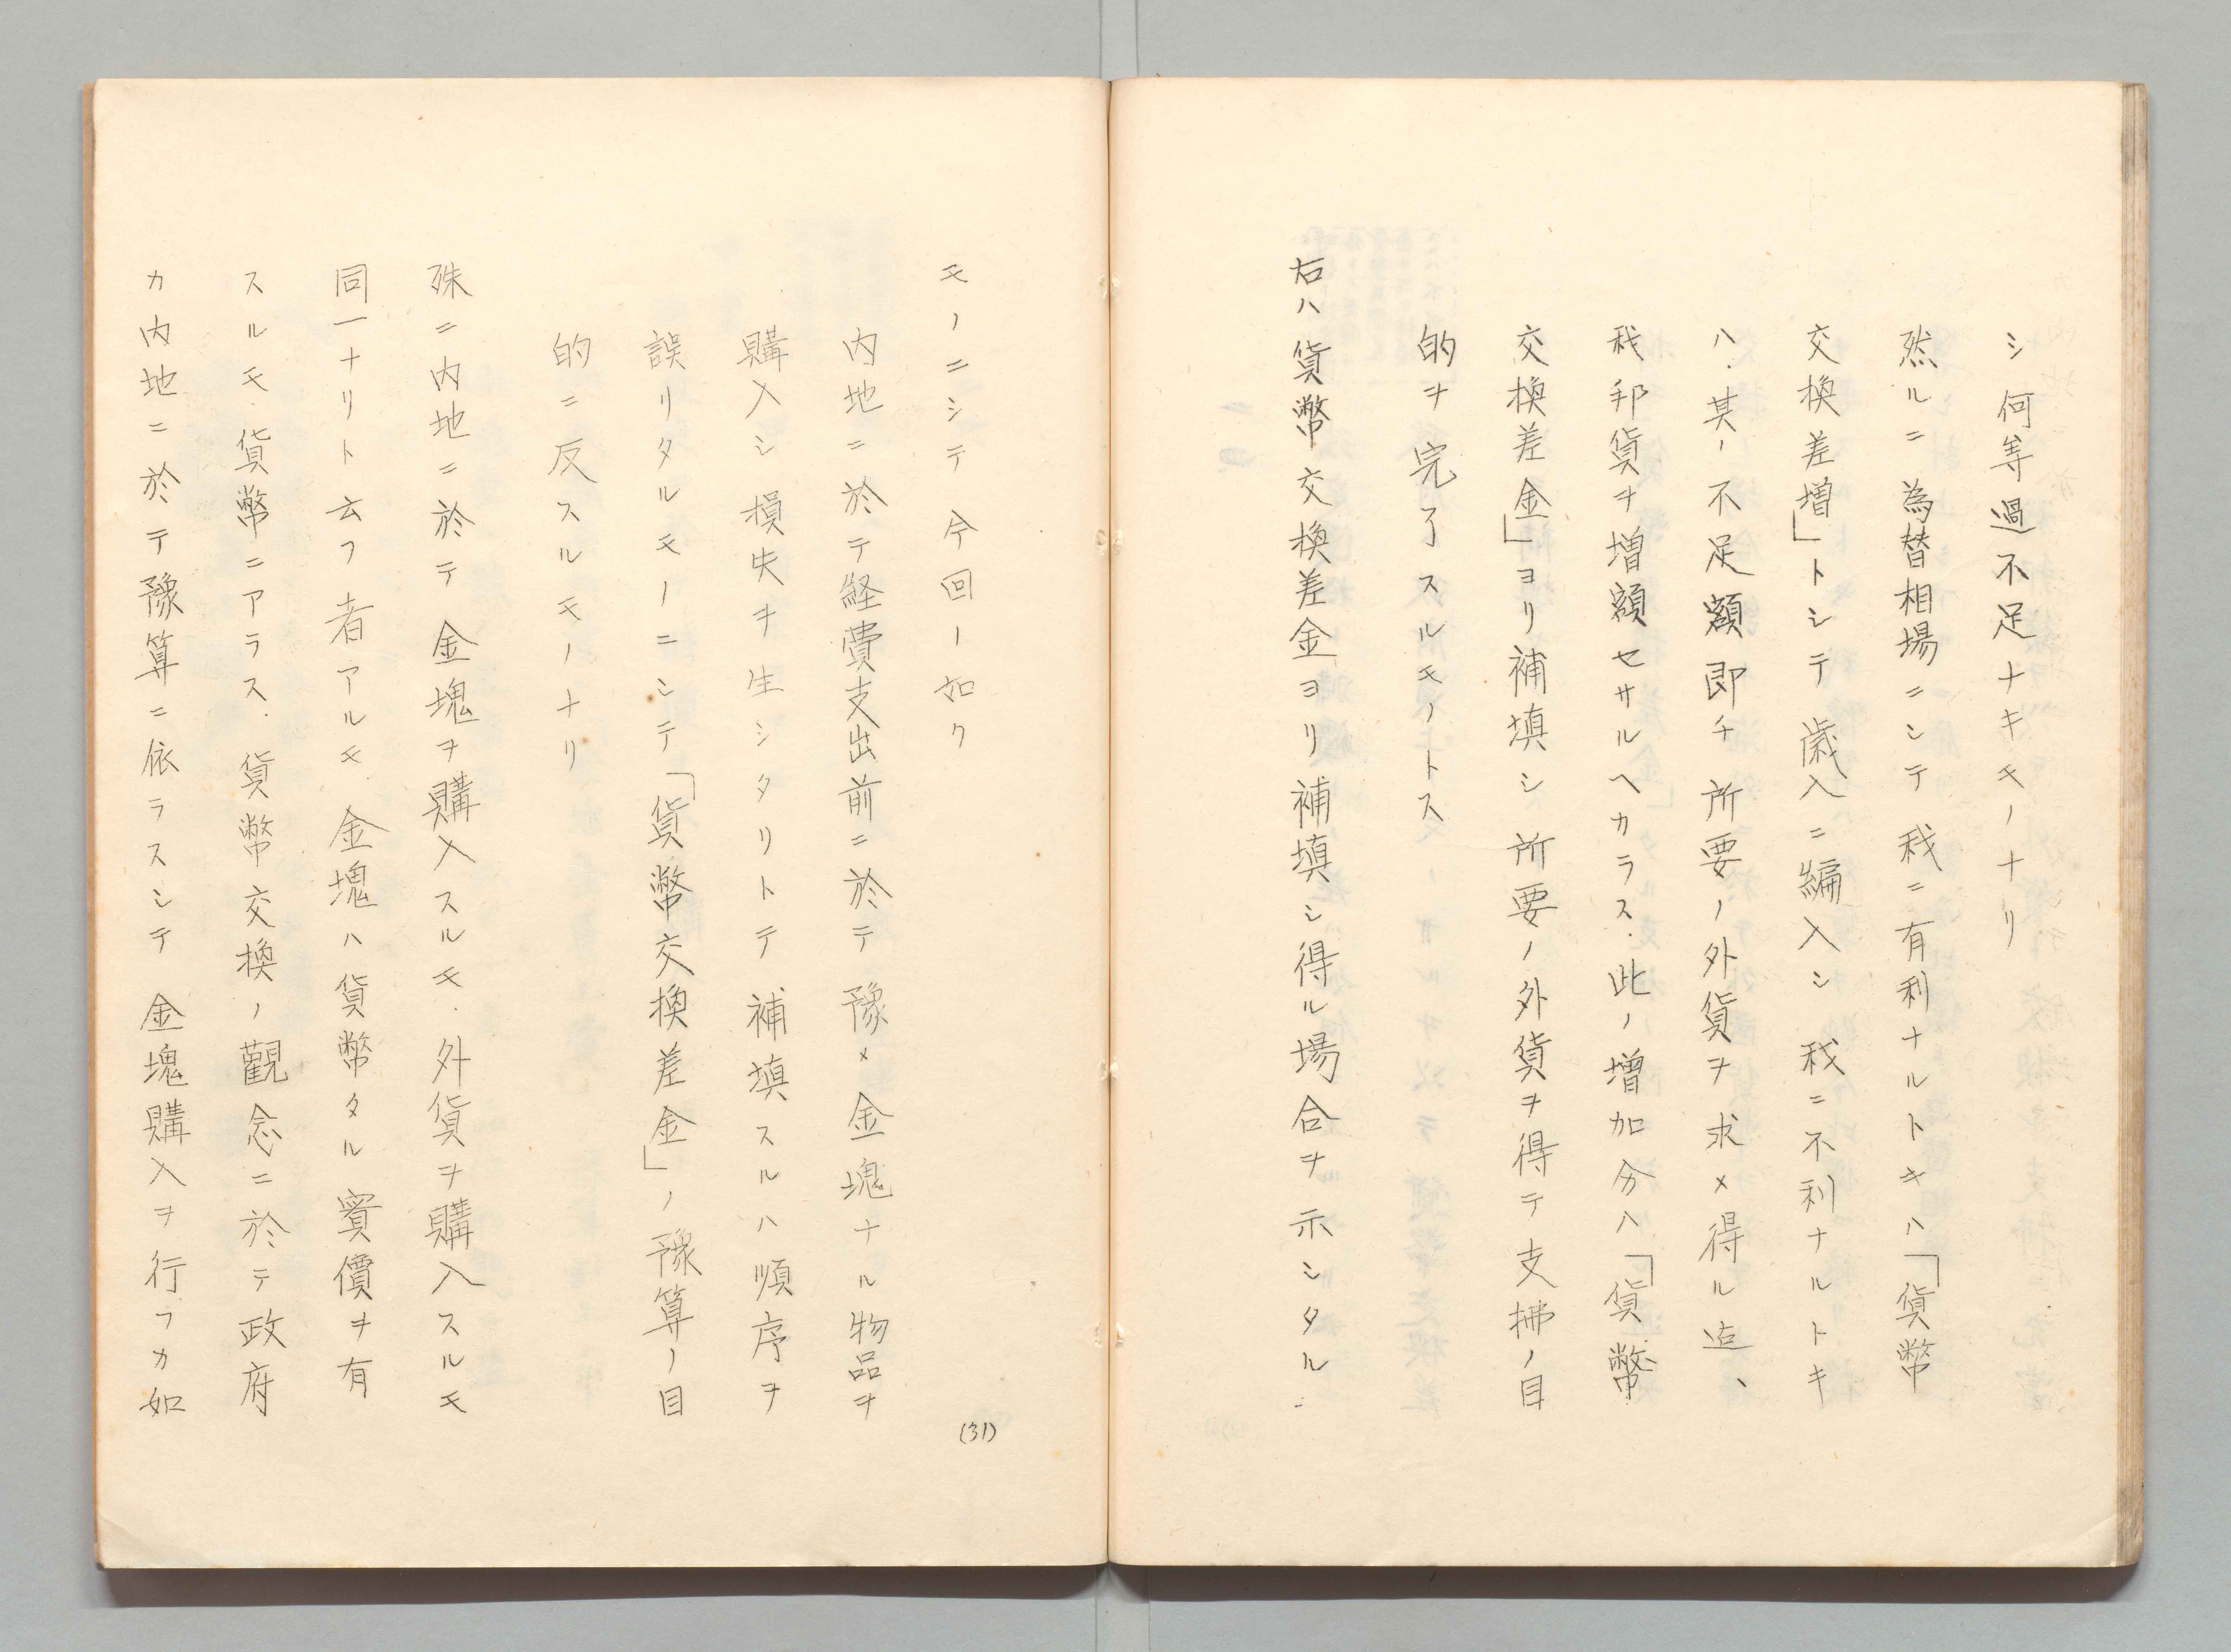 シ何等過不足ナキモノナリ
然ルニ為替相場ニシテ我ニ有利ナルトキハ「貨幣
交換差増」トシテ歳入ニ編入シ我ニ不利ナルトキ
ハ.其ノ不足額即チ所要ノ外貨ヲ求メ得ル迄、
我邦貨ヲ増額セサルヘカラス.此ノ増加分ハ「貨幣
交換差金」ヨリ補填シ所要ノ外貨ヲ得テ支拂ノ目
的ヲ完了スルモノトス
右ハ貨幣交換差金ヨリ補填シ得ル場合ヲ示シタル
モノニシテ今回ノ如ク
内地ニ於テ経費支出前ニ於テ豫メ金塊ナル物品ヲ
購入シ損失ヲ生シタリトテ補填スルハ順序ヲ
誤リタルモノニシテ「貨幣交換差金」ノ豫算ノ目
的ニ反スルモノナリ
殊ニ内地ニ於テ金塊ヲ購入スルモ.外貨ヲ購入スルモ
同一ナリト云フ者アルモ.金塊ハ貨幣タル實價ヲ有
スルモ.貨幣ニアラス.貨幣交換ノ觀念ニ於テ政府
カ内地ニ於テ豫算ニ依ラスシテ金塊購入ヲ行フカ如
(31)